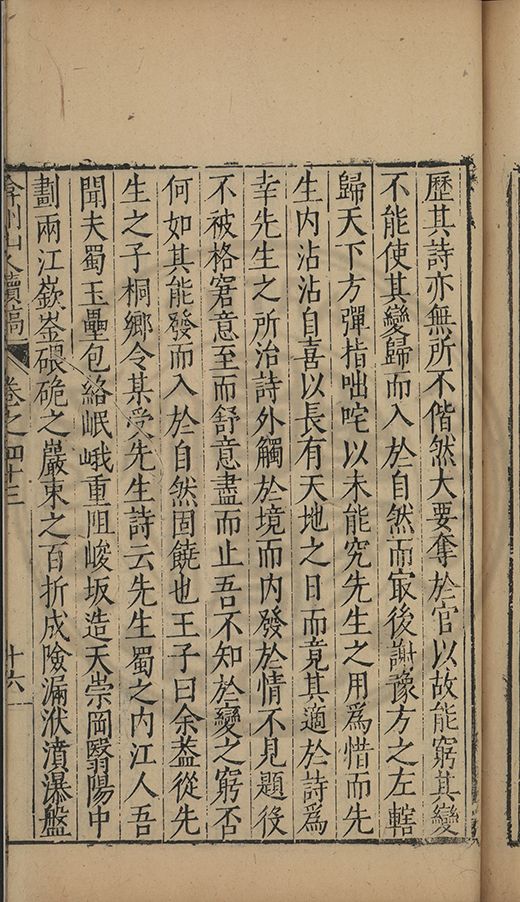 歷其詩亦無所不偕然大要奪於官以故能窮其變
不能使其變歸而入於自然而㝡後謝豫方之左轄
歸天下方彈指咄咤以未能究先生之用爲惜而先
生内沾沾自喜以長有天地之日而竟其適於詩爲
幸先生之所治詩外觸於境而内發於情不見題役
不被格窘意至而舒意盡而止吾不知於變之窮否
何如其能發而入於自然固饒也王子曰余葢從先
生之子桐鄉令某受先生詩云先生蜀之内江人吾
聞夫蜀玉壘包絡岷峨重阻峻坂造天崇岡翳陽中
劃兩江嶔崟磈硊之巖束之百折成險漏洑濆瀑盤
弇州山人續稿 卷之四十三 十六